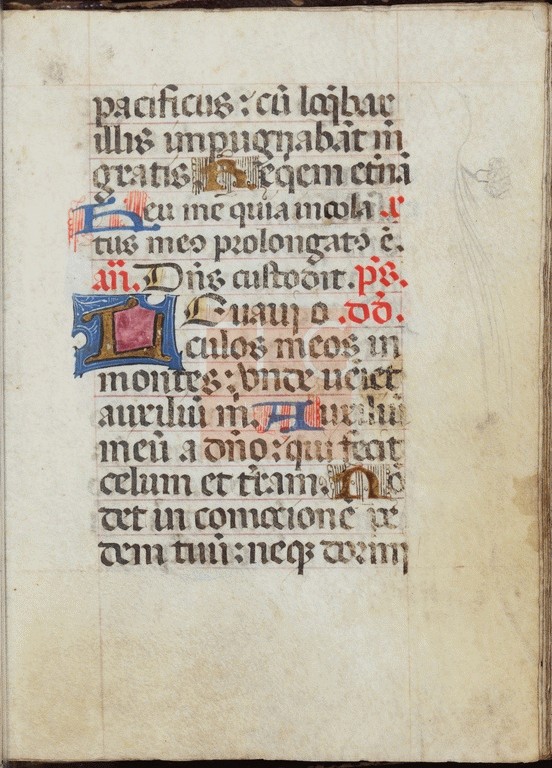 pacificus : cū loq̄bar
illis inpugnabāt m̄
gratis. Reqēm etn̄ā
Heu me quia incola
tus meꝰ prolongatꝰ ē.
an̄. Dn̄s custodit. p̄s.
LEuaui o .dd̄.
culos meos in
montes : vnde ueīet
auxiliū m̄. Auxiliū
meū a dn̄o : qui fecit
celum et t̄ram. No
det in comocione pe
dem tuū : neqꝫ dormi